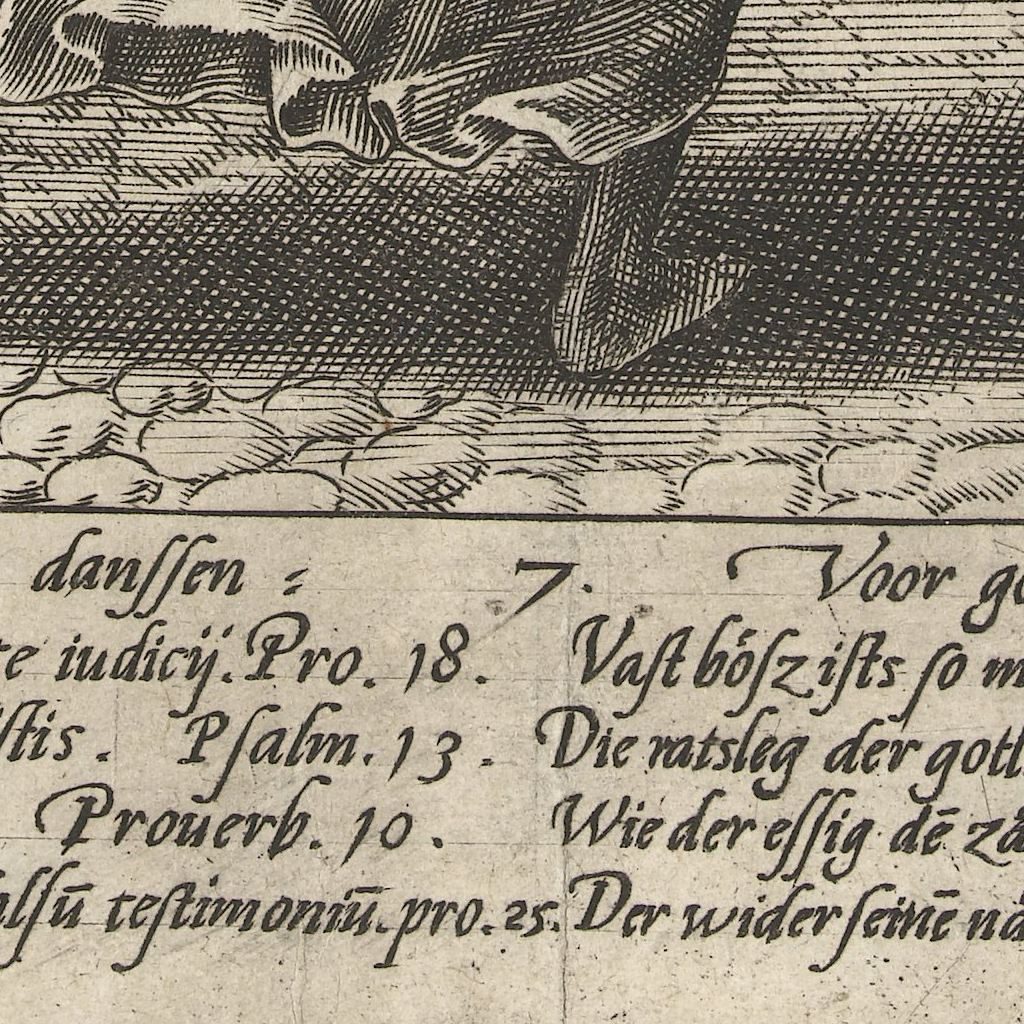 danſſen = 7. Voor
iudicij. Pro. 18. Vaſt böſz iſts ſo
Pſalm. 13. Die ratsleg der
Prouerb. 10. Wie der eſſig dē
teſtimoniū. pro. 25. Der wider ſeinē